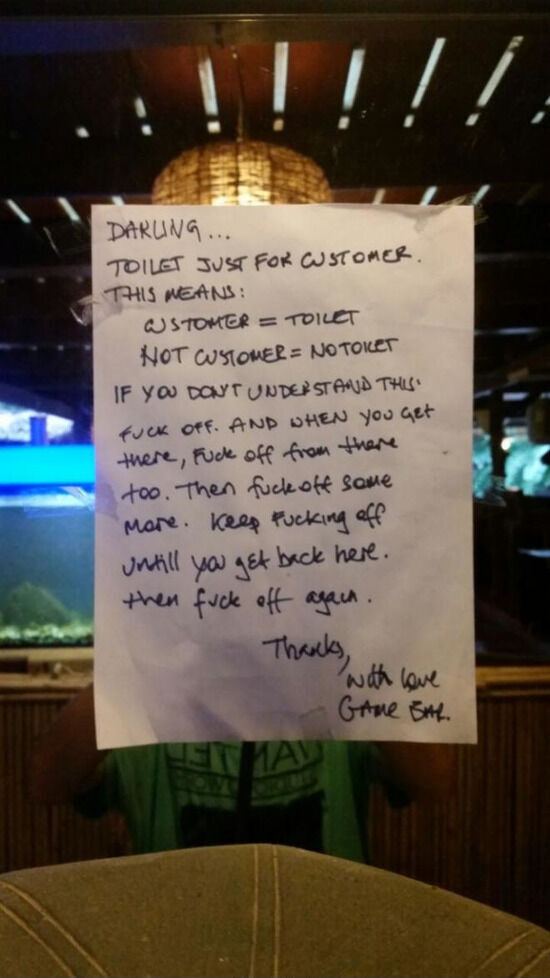 DARLING...
TOILET JUST FOR CUSTOMER.
THIS MEANS:
CUSTOMER = TOILET
NOT CUSTOMER = NO TOILET
IF YOU DON'T UNDERSTAND THIS:
FUCK OFF. AND WHEN YOU GET
there, Fuck off from there
too. Then fuck off some
more. Keep Fucking off
untill you get back here.
then fuck off again.
Thanks,
with love
GAME BAR.